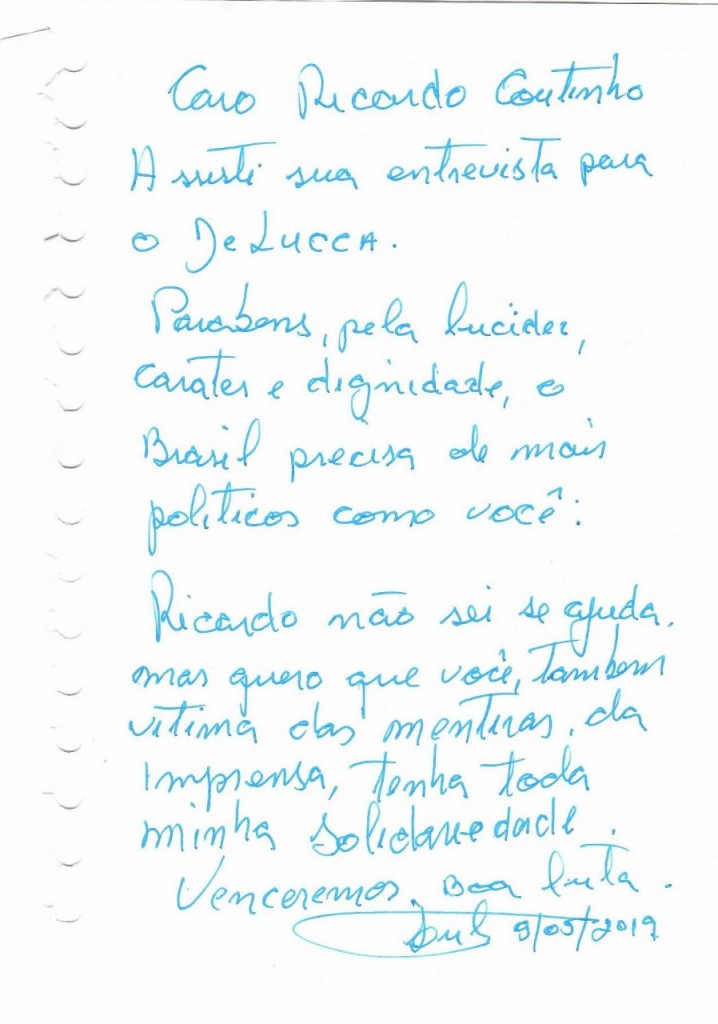 Caro Ricardo Coutinho
Assisti sua entrevista para
o De LUCCA.
Parabens, pela lucidez,
carater e dignidade, o
Brasil precisa de mais
politicos como você:
Ricardo não sei se ajuda.
mas quero que você, tambem
vitima das mentiras, da
Imprensa, tenha toda
minha solidariedade.
Venceremos. Boa luta.
Lula 9/05/2019